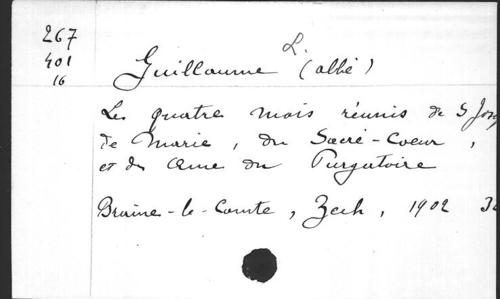 267
401
16
Guillaume L. (abbé)
Les quatre mois réunis de S Jos
de Marie, du Sacré-Coeur,
et des Ame du Purgatoire
Braine-le-Comte, Zech, 1902